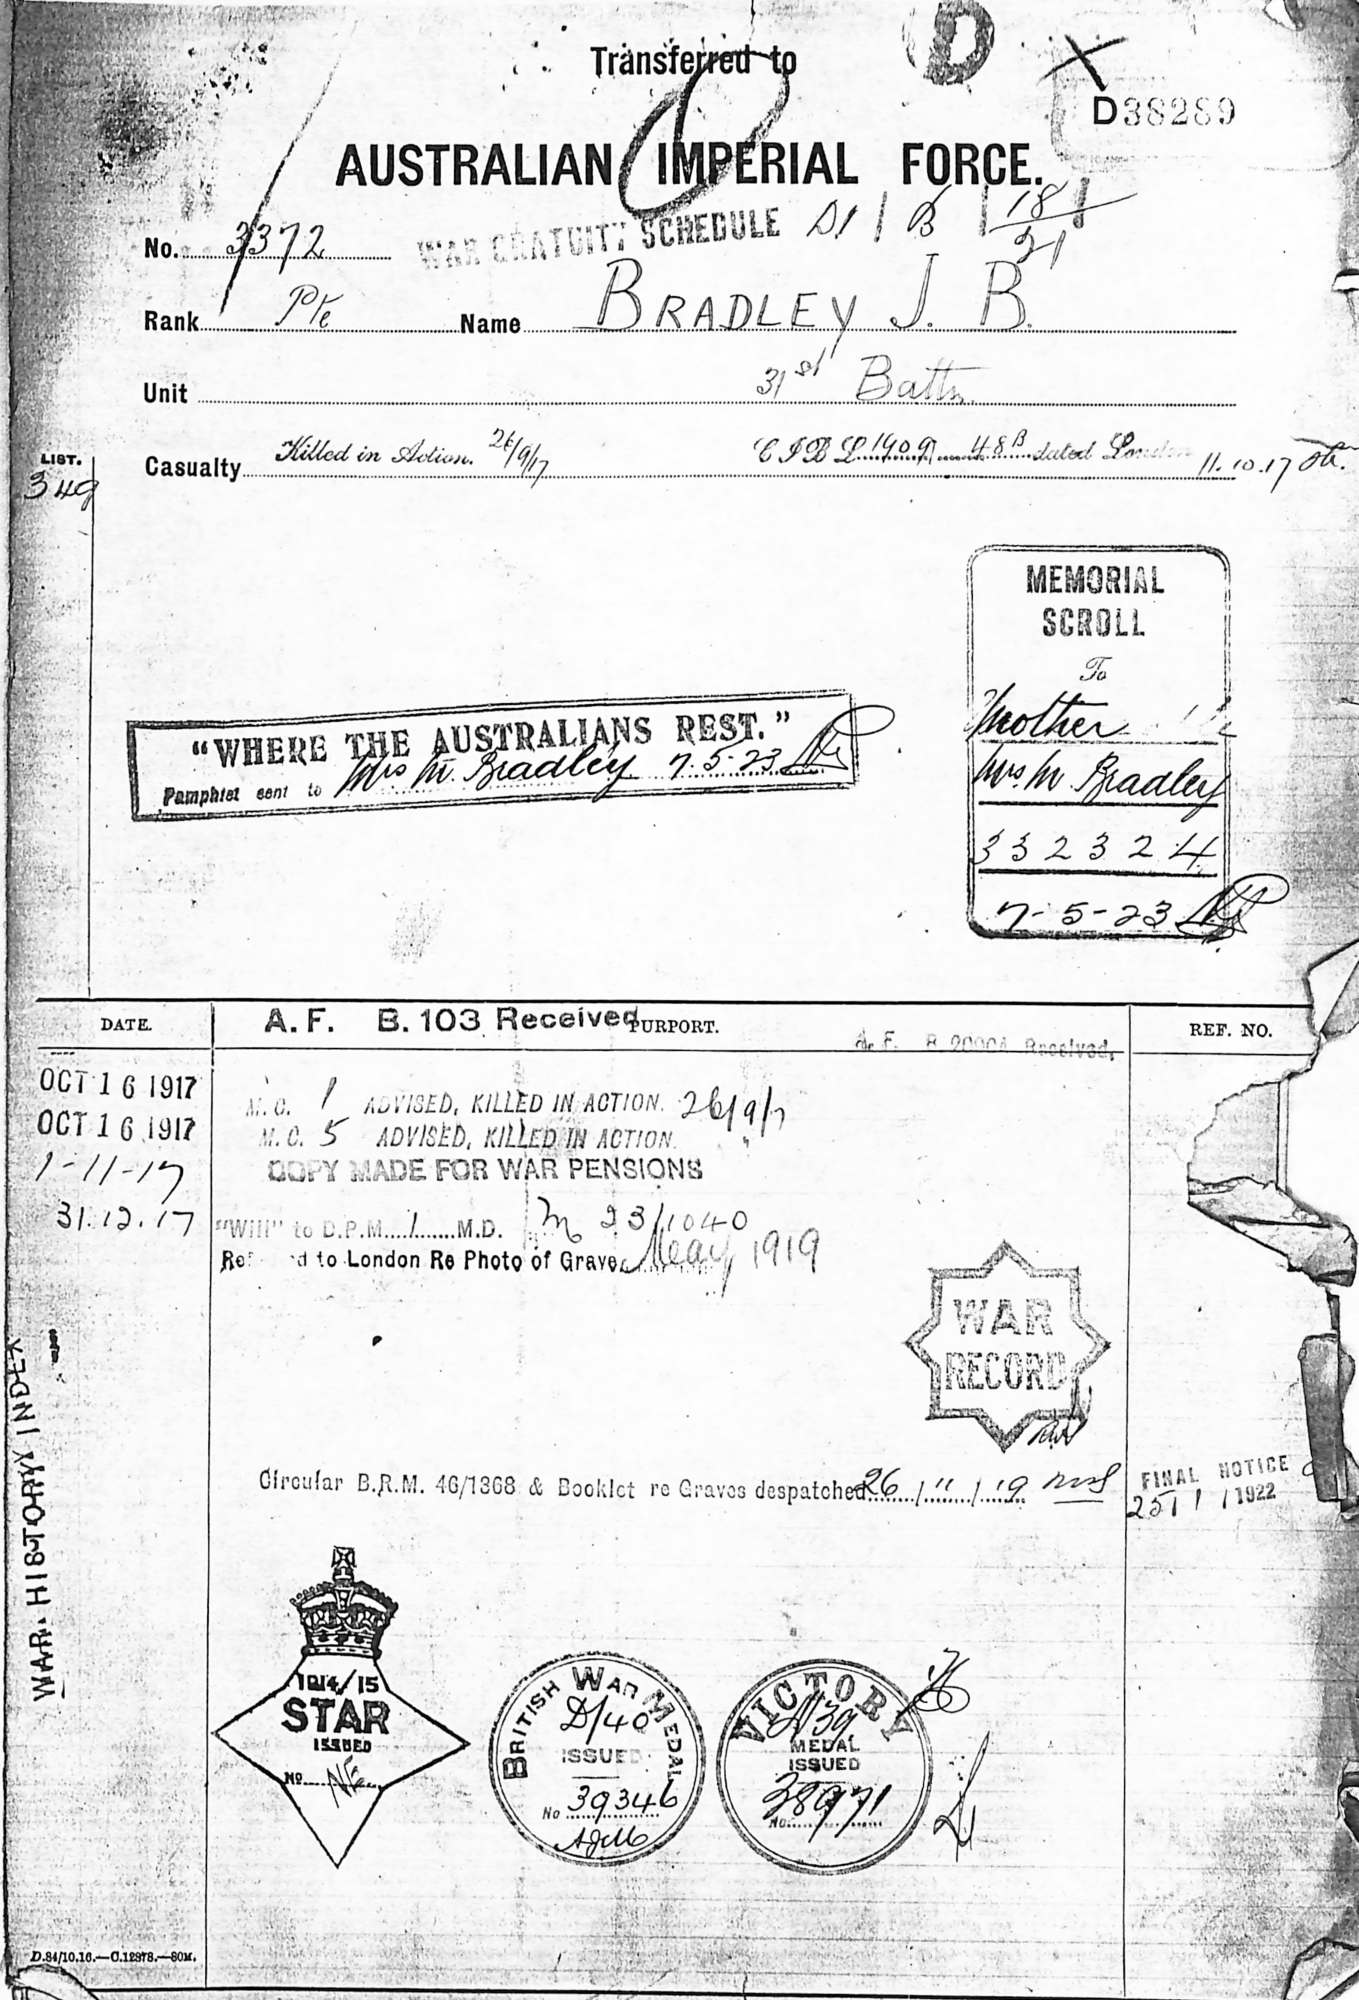 Transferred to
D
D38289
AUSTRALIAN IMPERIAL FORCE.
WAR GRATUITY SCHEDULE D1 / B / 18/21
No. 3372
Rank Pte Name BRADLEY J. B.
Unit 31st Battn
LIST. 349
Casualty Killed in Action. 26/9/17 48B dated London 11.10.17
MEMORIAL
SCROLL
To
Mother
Mrs. M. Bradley
332324
7-5-23
"WHERE THE AUSTRALIANS REST."
Pamphlet sent to Mrs M. Bradley 7.5.23
DATE. A.F. B.103 Received PURPORT. REF. NO.
A.F. B.2090A Received.
OCT 16 1917 M.C. 1 ADVISED, KILLED IN ACTION. 26/9/17
OCT 16 1917 M.C. 5 ADVISED, KILLED IN ACTION. "
1-11-17 COPY MADE FOR WAR PENSIONS
31.12.17 "Will" to D.P.M. 1 M.D. 23/1040
to London Re Photo of Grave May 1919
WAR
RECORD
Circular B.R.M. 46/1368 & Booklet re Graves despatched 26/11/19
FINAL NOTICE
25/1/1922
WAR HISTORY INDEX
1914/15
STAR
ISSUED
No. NE
BRITISH WAR MEDAL
D/40
ISSUED
No 39346
VICTORY
D/39
MEDAL
ISSUED
38971
No.
D.84/10.16.—C.12978.—80M.